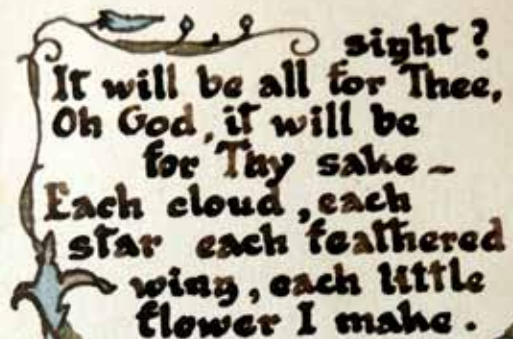 sight?
It will be all for Thee,
Oh God, it will be
for Thy sake –
Each cloud, each
star each feathered
wing, each little
flower I make.